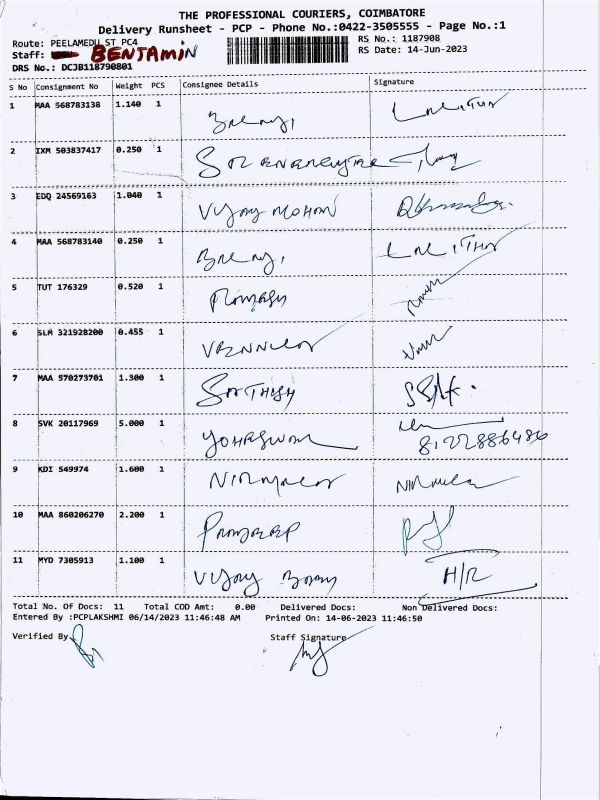 THE PROFESSIONAL COURIERS, COIMBATORE
Delivery Runsheet - PCP - Phone No.:0422-3505555 - Page No.:1
Route: PEELAMEDU ST PC4
RS No.: 1187908
Staff: BENJAMIN
RS Date: 14-Jun-2023
DRS No.: DCJB118790801
S No Consignment No Weight PCS Consignee Details Signature
1 MAA 568783138 1.140 1
2 IXM 503837417 0.250 1
3 EDQ 24569163 1.040 1 VIJAY MOHAN
4 MAA 568783140 0.250 1 LALITHA
5 TUT 176329 0.520 1
6 SLM 321928200 0.455 1
7 MAA 570273701 1.300 1 SATHISH
8 SVK 20117969 5.000 1 8122886486
9 KDI 549974 1.600 1 NIRMALA
10 MAA 860206270 2.200 1 PRADEEP
11 MYD 7305913 1.100 1 VIJAY H/R
Total No. Of Docs: 11 Total COD Amt: 0.00 Delivered Docs: Non Delivered Docs:
Entered By :PCPLAKSHMI 06/14/2023 11:46:48 AM Printed On: 14-06-2023 11:46:50
Verified By Staff Signature